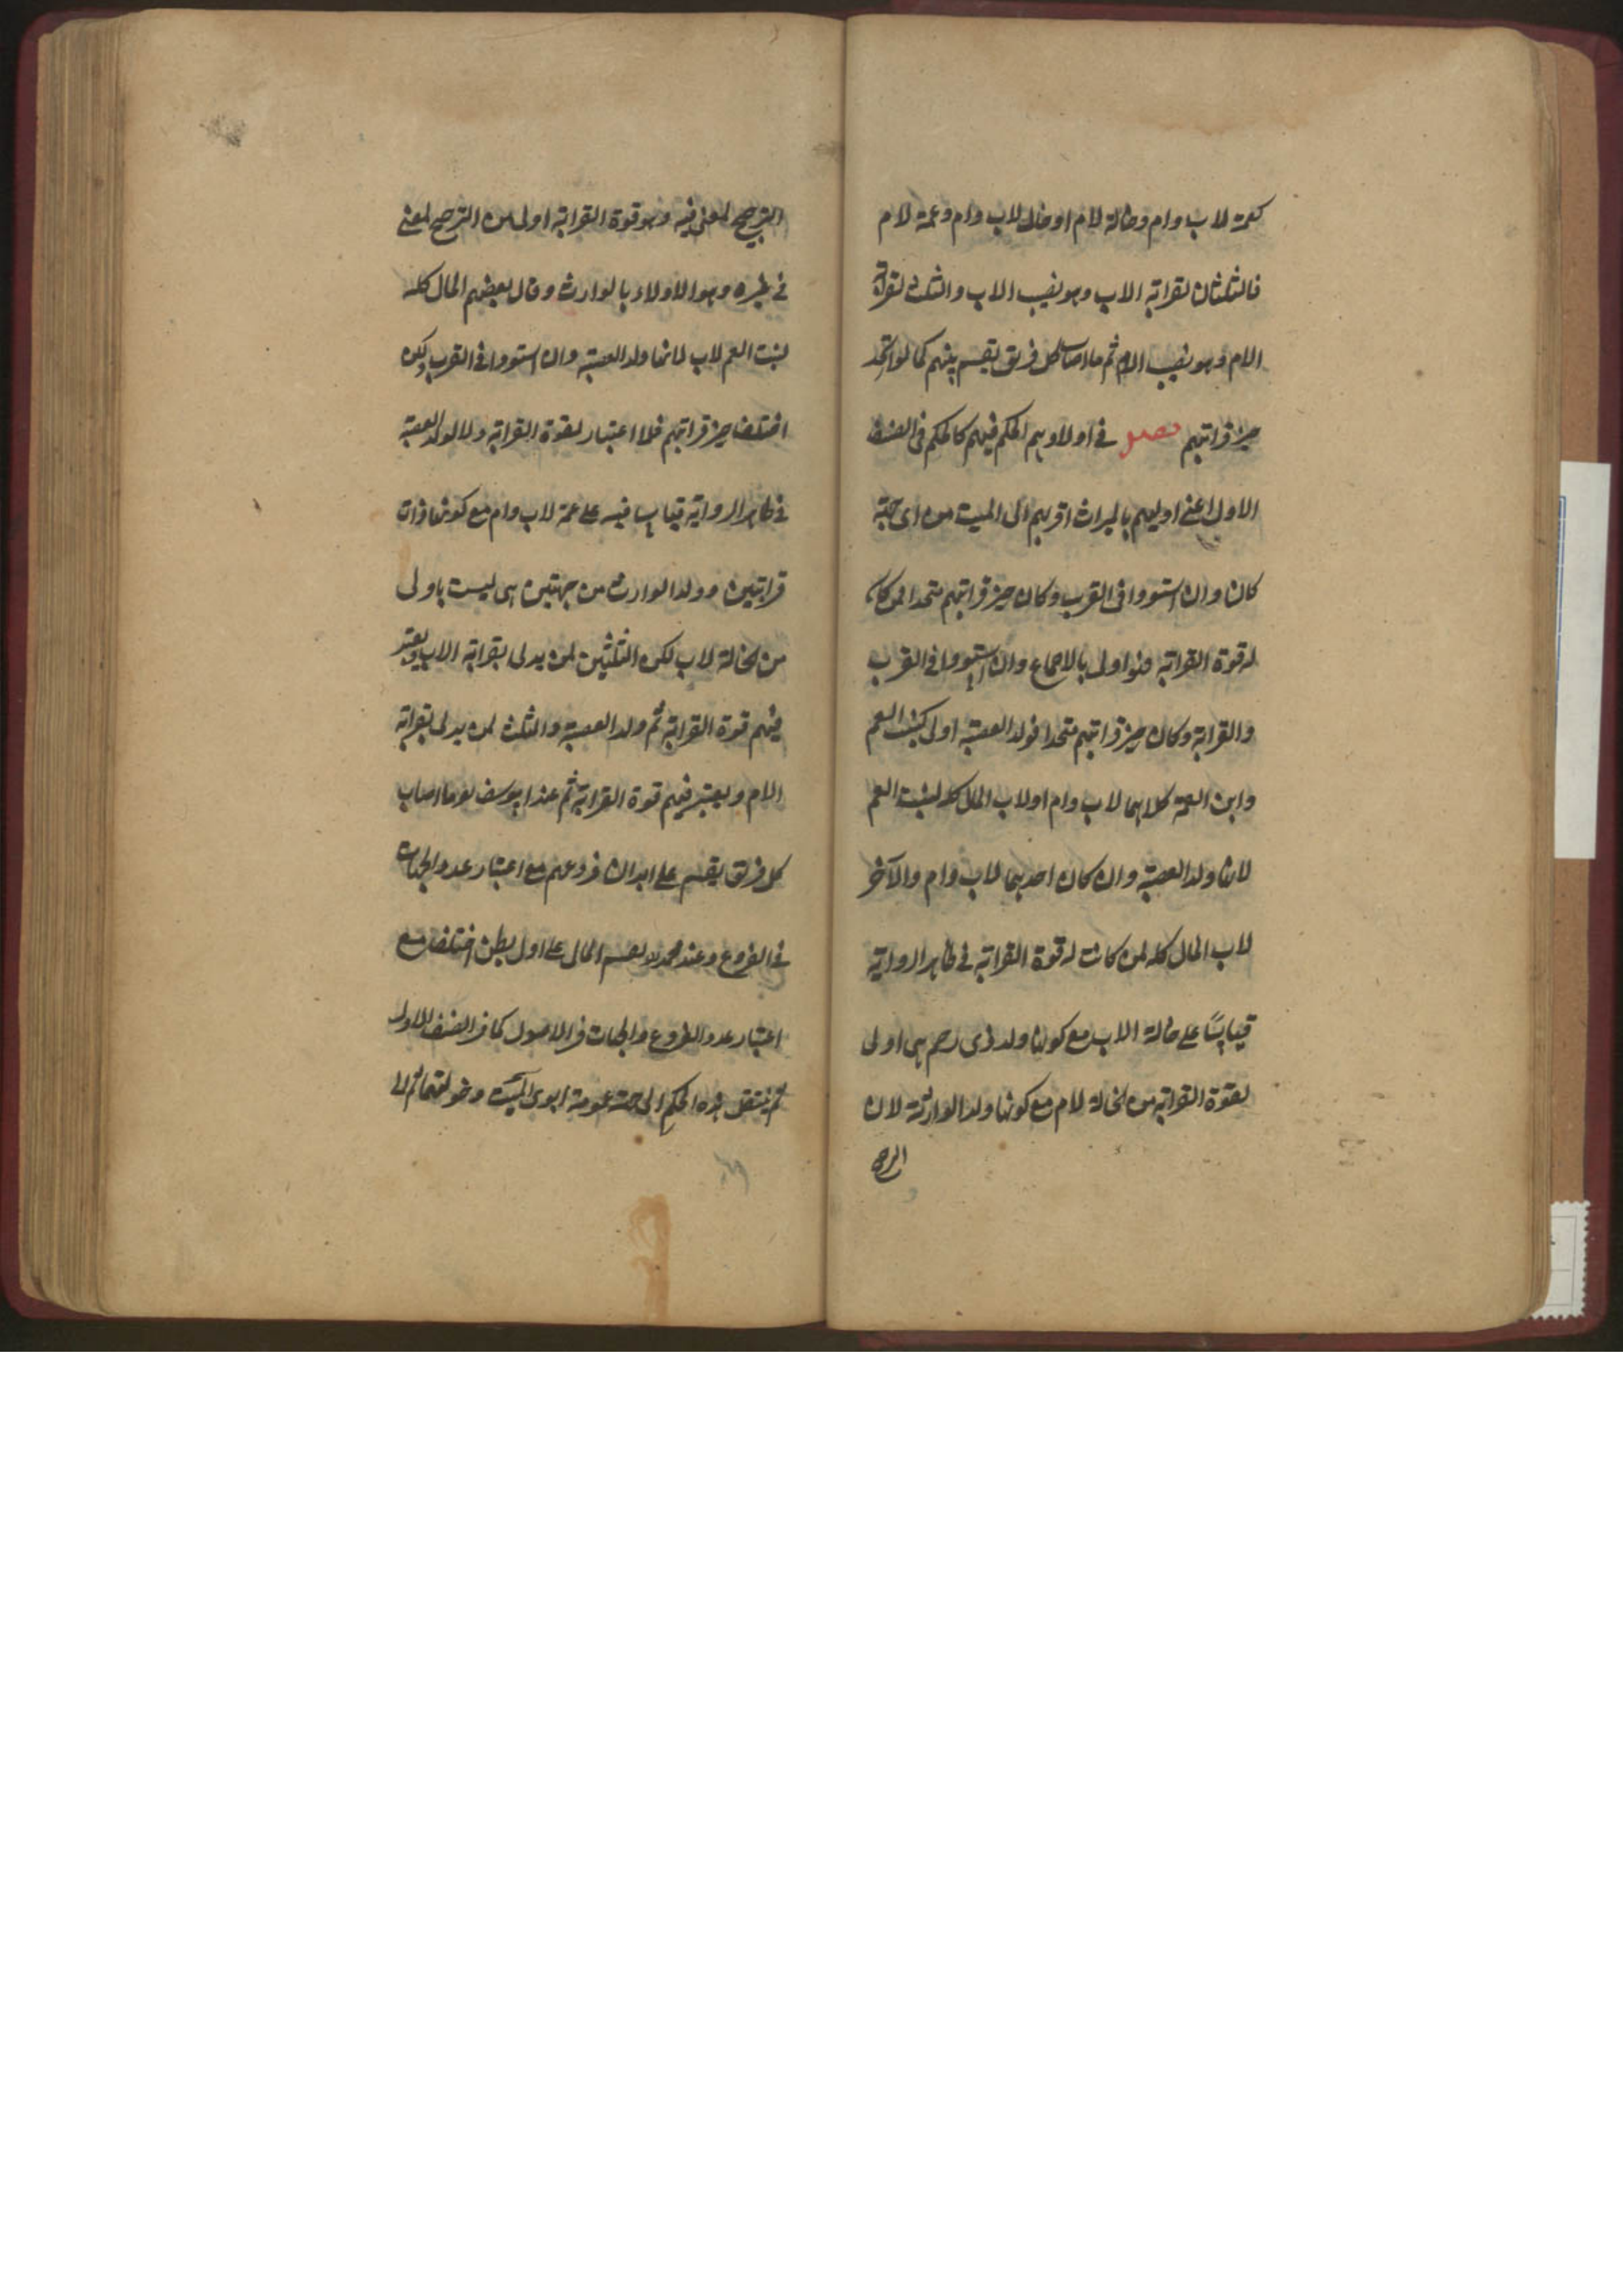 كعمة لاب وام وخالة لام او خال لاب وام وعمة لام
فالثلثان لقرابة الاب وهو نصيب الاب والثلث لقرابة
الام وهو نصيب الام ثم ما اصاب كل فريق يقسم بينهم كما لو اتحد
حيز قرابتهم فصل في اولادهم الحكم فيهم كالحكم في الصنف
الاول اعني اوليهم بالميراث اقربهم الى الميت من اى جهة
كان وان استووا في القرب وكان حيز قرابتهم متحدا فمن كانت
له قوة القرابة فهو اولى بالاجماع وان استووا في القرب
والقرابة وكان حيز قرابتهم متحدا فولد العصبة اولى كبنت العم
وابن العمة كلاهما لاب وام او لاب المال كله لبنت العم
لانها ولد العصبة وان كان احدهما لاب وام والآخر
لاب المال كله لمن كانت له قوة القرابة في ظاهر الرواية
قياسًا على خالة الاب مع كونها ولد ذى رحم هى اولى
بقوة القرابة من الخالة لام مع كونها ولد الوارثة لان
الترجيح لمعنى فيه وهو قوة القرابة اولى من الترجيح لمعنى
في غيره وهو الاولاء بالوارث وقال بعضهم المال كله
لبنت العم لاب لانها ولد العصبة وان استووا في القرب ولكن
اختلف حيز قرابتهم فلا اعتبار لقوة القرابة ولا لولد العصبة
في ظاهر الرواية قياسا فيه على عمة لاب وام مع كونها ذات
قرابتين وولد الوارث من جهتين هى ليست باولى
من الخالة لاب لكن الثلثين لمن يدلى بقرابة الاب ويعتبر
فيهم قوة القرابة ثم ولد العصبة والثلث لمن يدلى بقرابة
الام ويعتبر فيهم قوة القرابة ثم عند ابو يوسف ما اصاب
كل فريق يقسم على ابدان فروعهم مع اعتبار عدد الجهات
في الفروع وعند محمد يقسم المال على اول بطن اختلف مع
اعتبار عدد الفروع والجهات في الاصول كما في الصنف الاول
ثم ينتقل هذه الحكم الى جهة عمومة ابوى الميت وخولتهما ثم الى